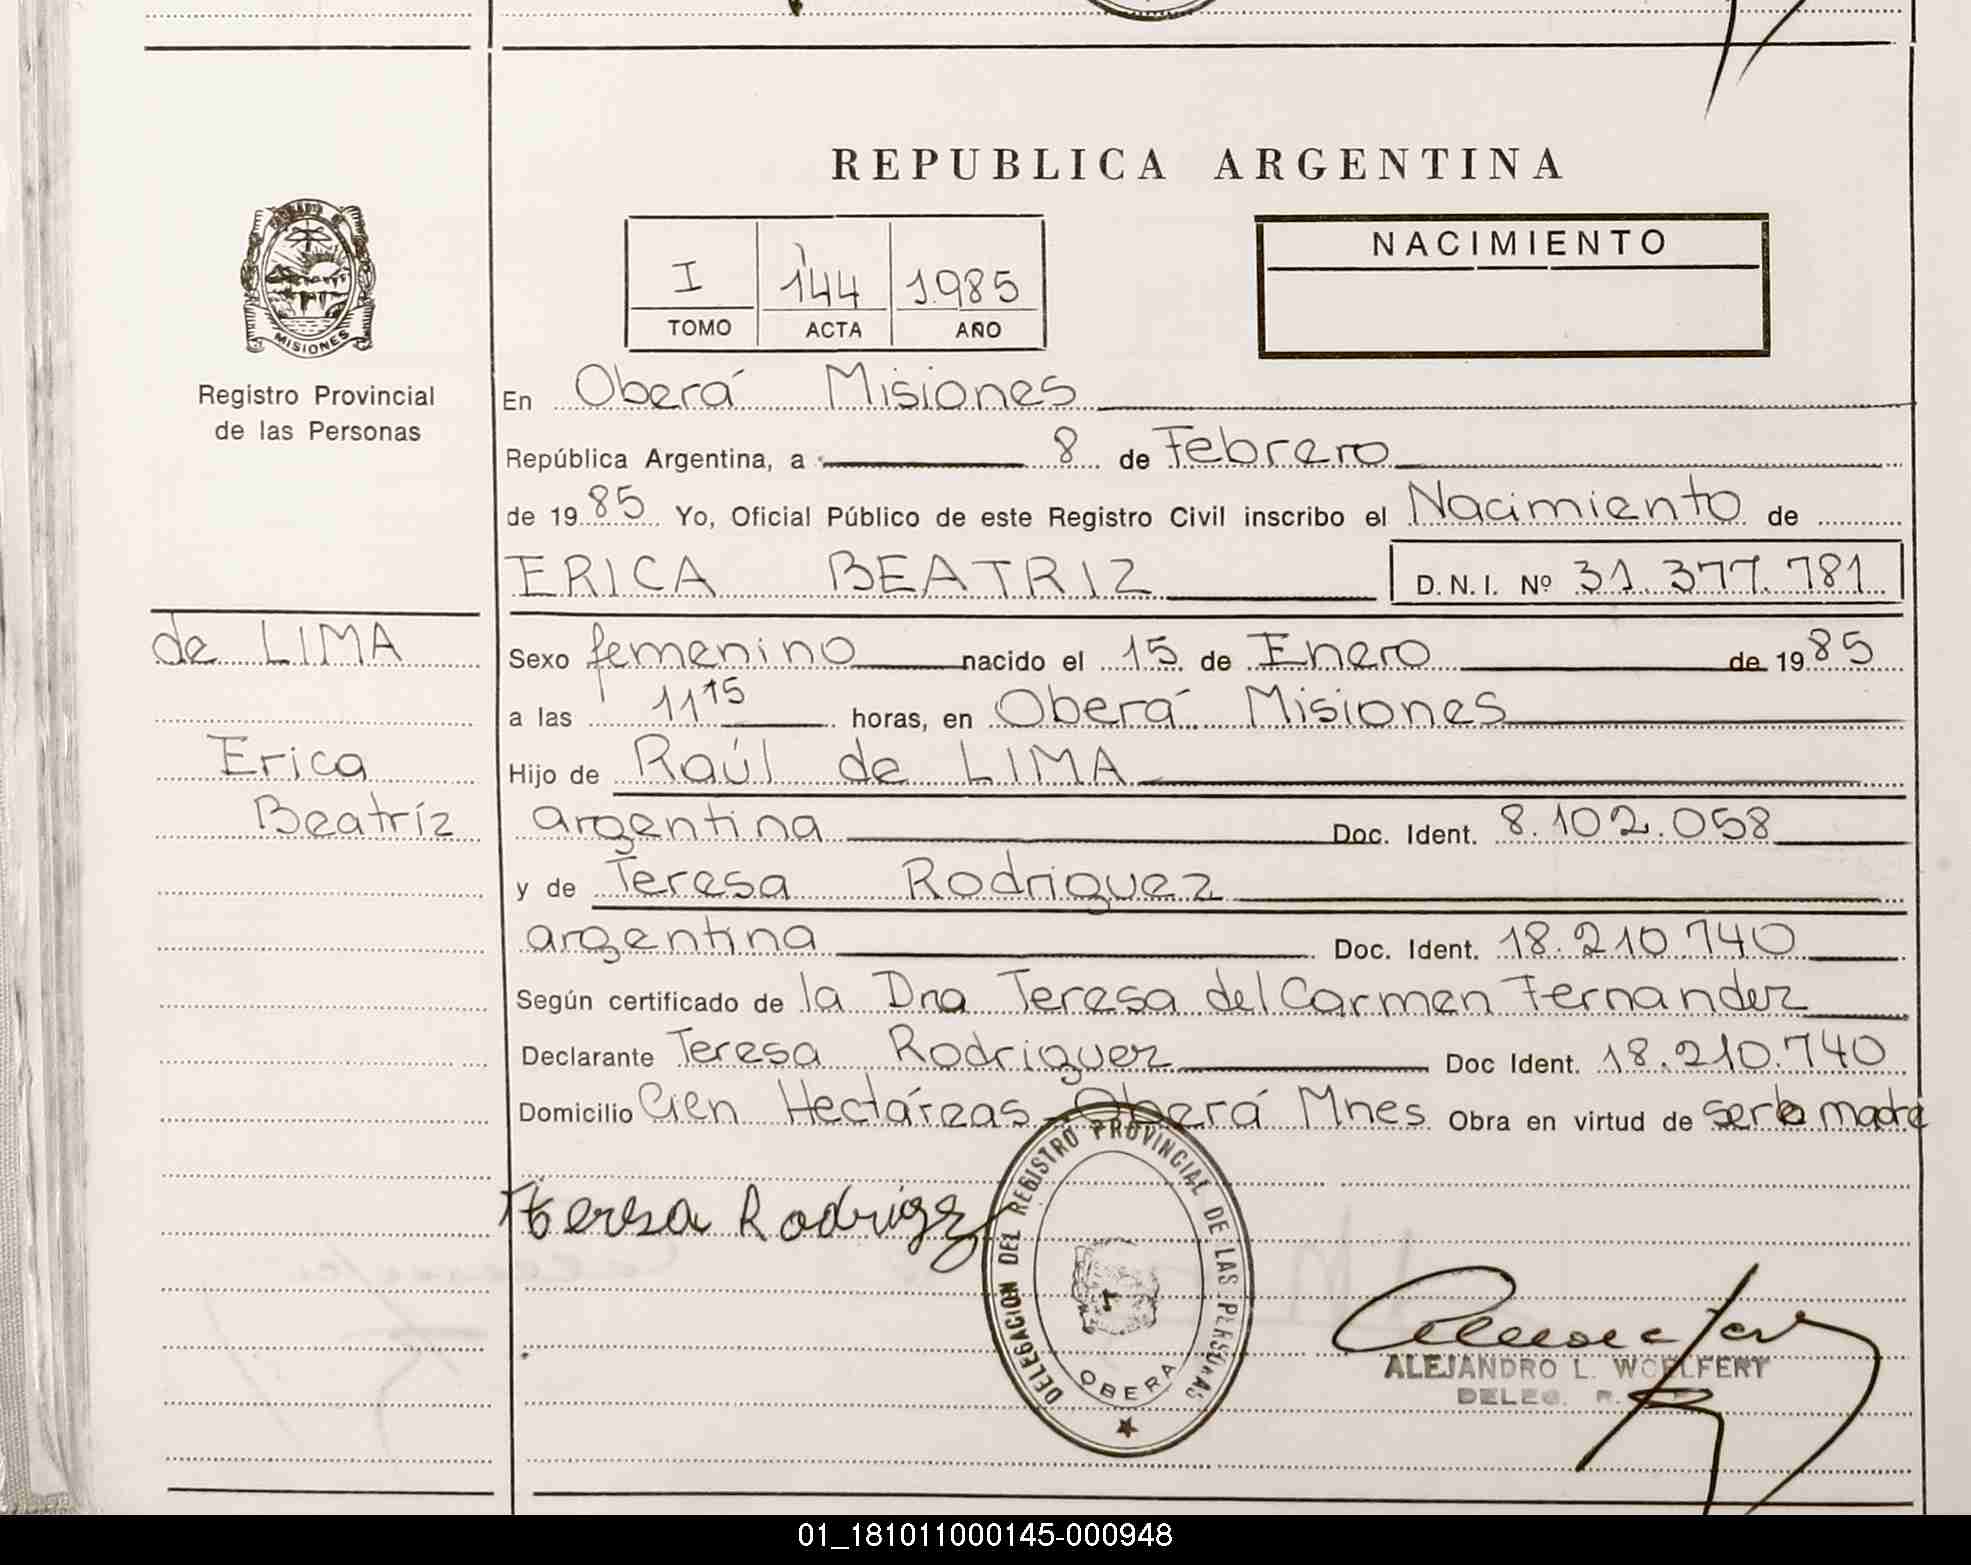 REPUBLICA ARGENTINA
MISIONES
Registro Provincial
de las Personas
NACIMIENTO
I 144 1985
TOMO ACTA AÑO
En Oberá Misiones
República Argentina, a 8 de Febrero
de 1985 Yo, Oficial Público de este Registro Civil inscribo el Nacimiento de
ERICA BEATRIZ D.N.I. Nº 31.377.781
de LIMA
Erica
Beatríz
Sexo femenino nacido el 15 de Enero de 1985
a las 11 15 horas, en Oberá Misiones
Hijo de Raúl de LIMA
argentina Doc. Ident. 8.102.058
y de Teresa Rodriguez
argentina Doc. Ident. 18.210.740
Según certificado de la Dra Teresa del Carmen Fernandez
Declarante Teresa Rodriguez Doc Ident. 18.210.740
Domicilio Cien Hectáreas Oberá Mnes Obra en virtud de ser la madre
Teresa Rodrigz
DELEGACION DEL REGISTRO PROVINCIAL DE LAS PERSONAS
OBERA
ALEJANDRO L. WOELFERT
DELEG. R.
01_181011000145-000948